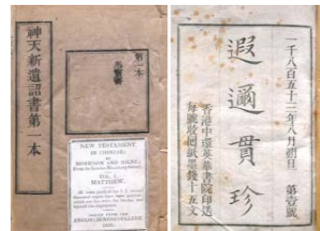 神天新遺詔書第一本
第一本
馬竇書
NEW TESTAMENT
IN CHINESE;
BY
MORRISON AND MILNE;
VOL. I.
MATTHEW.
ANGLO-CHINESE COLLEGE
一千八百五十三年八月朔日 第壹號
遐邇貫珍
香港中環英華書院印送
每號收回紙墨錢十五文